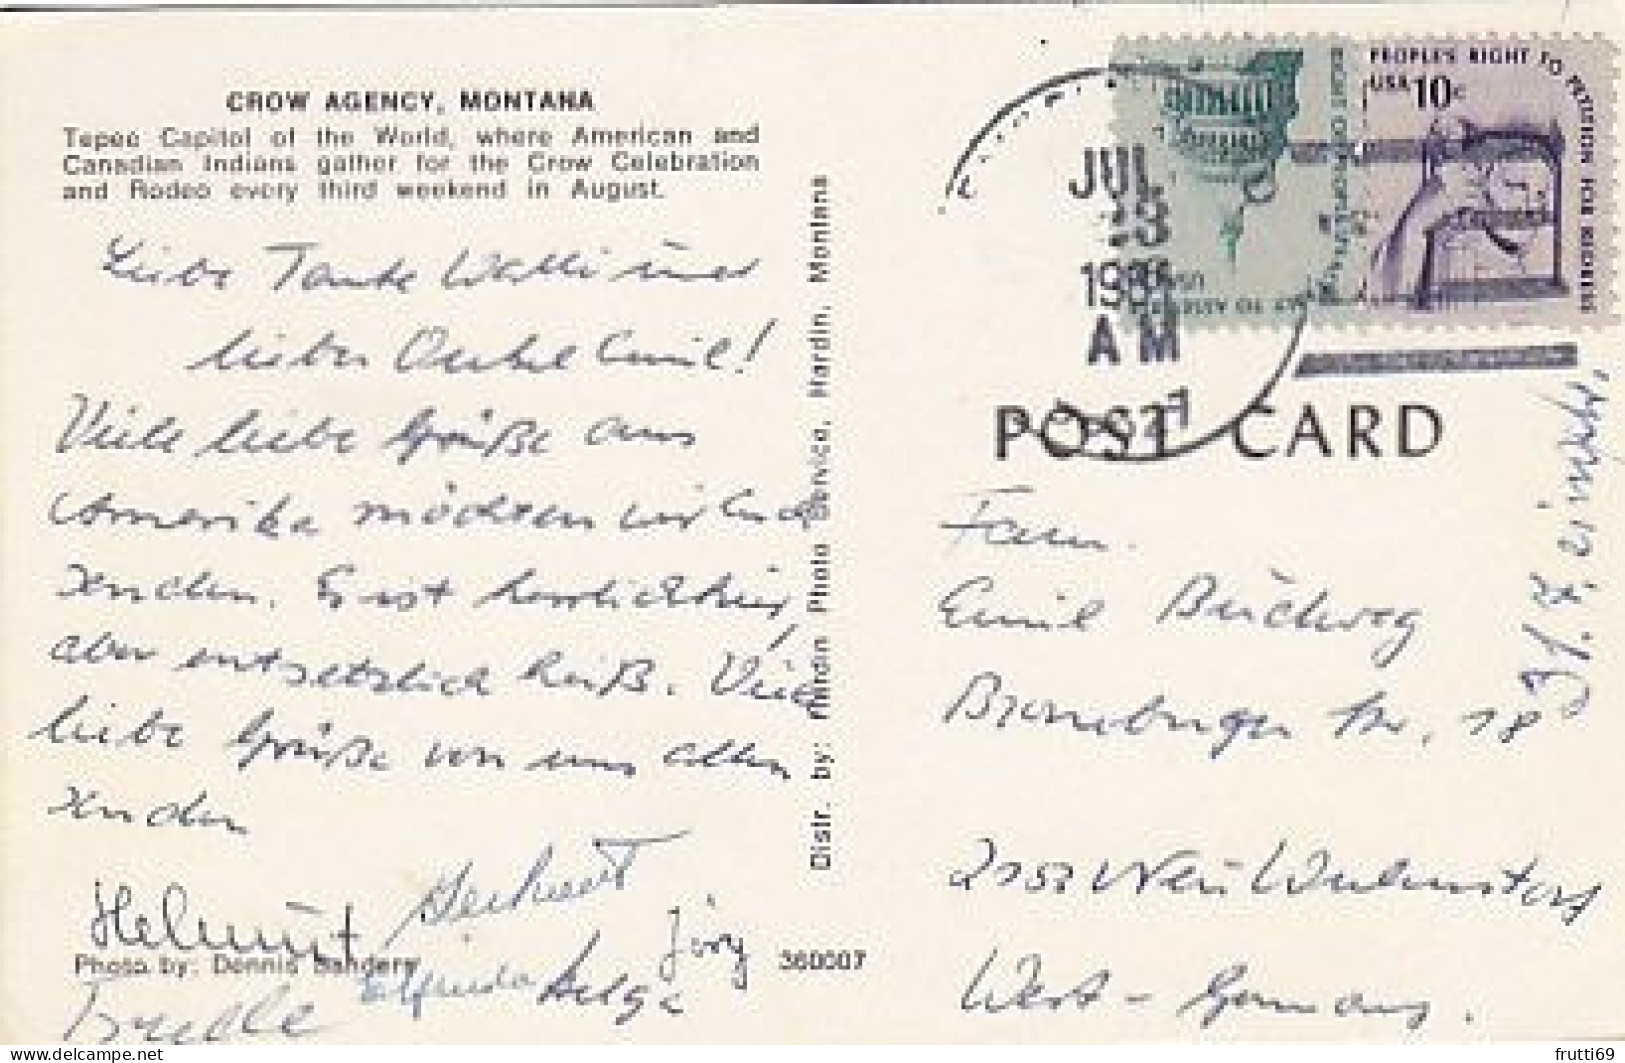 CROW AGENCY, MONTANA
Tepee Capitol of the World, where American and
Canadian Indians gather for the Crow Celebration
and Rodeo every third weekend in August.
Liebe Tante Walli und
lieber Onkel Emil!
Viele liebe Grüße aus
Amerika möchten wir Euch
senden. Es ist herrlich hier,
aber entsetzlich heiß. Viele
liebe Grüße von uns allen
senden
Helmut
Herbert
Jörg
Photo by: Dennis Sanders
Elfriede Helga
Trudle
360007
Distr. by: Hardin Photo Service, Hardin, Montana
PEOPLE'S RIGHT TO PETITION FOR REDRESS
USA 10c
JUL
AM
POST CARD
Fam.
Emil
18
Neu Wulmstorf
West-Germany.
frutti69
delcampe.net